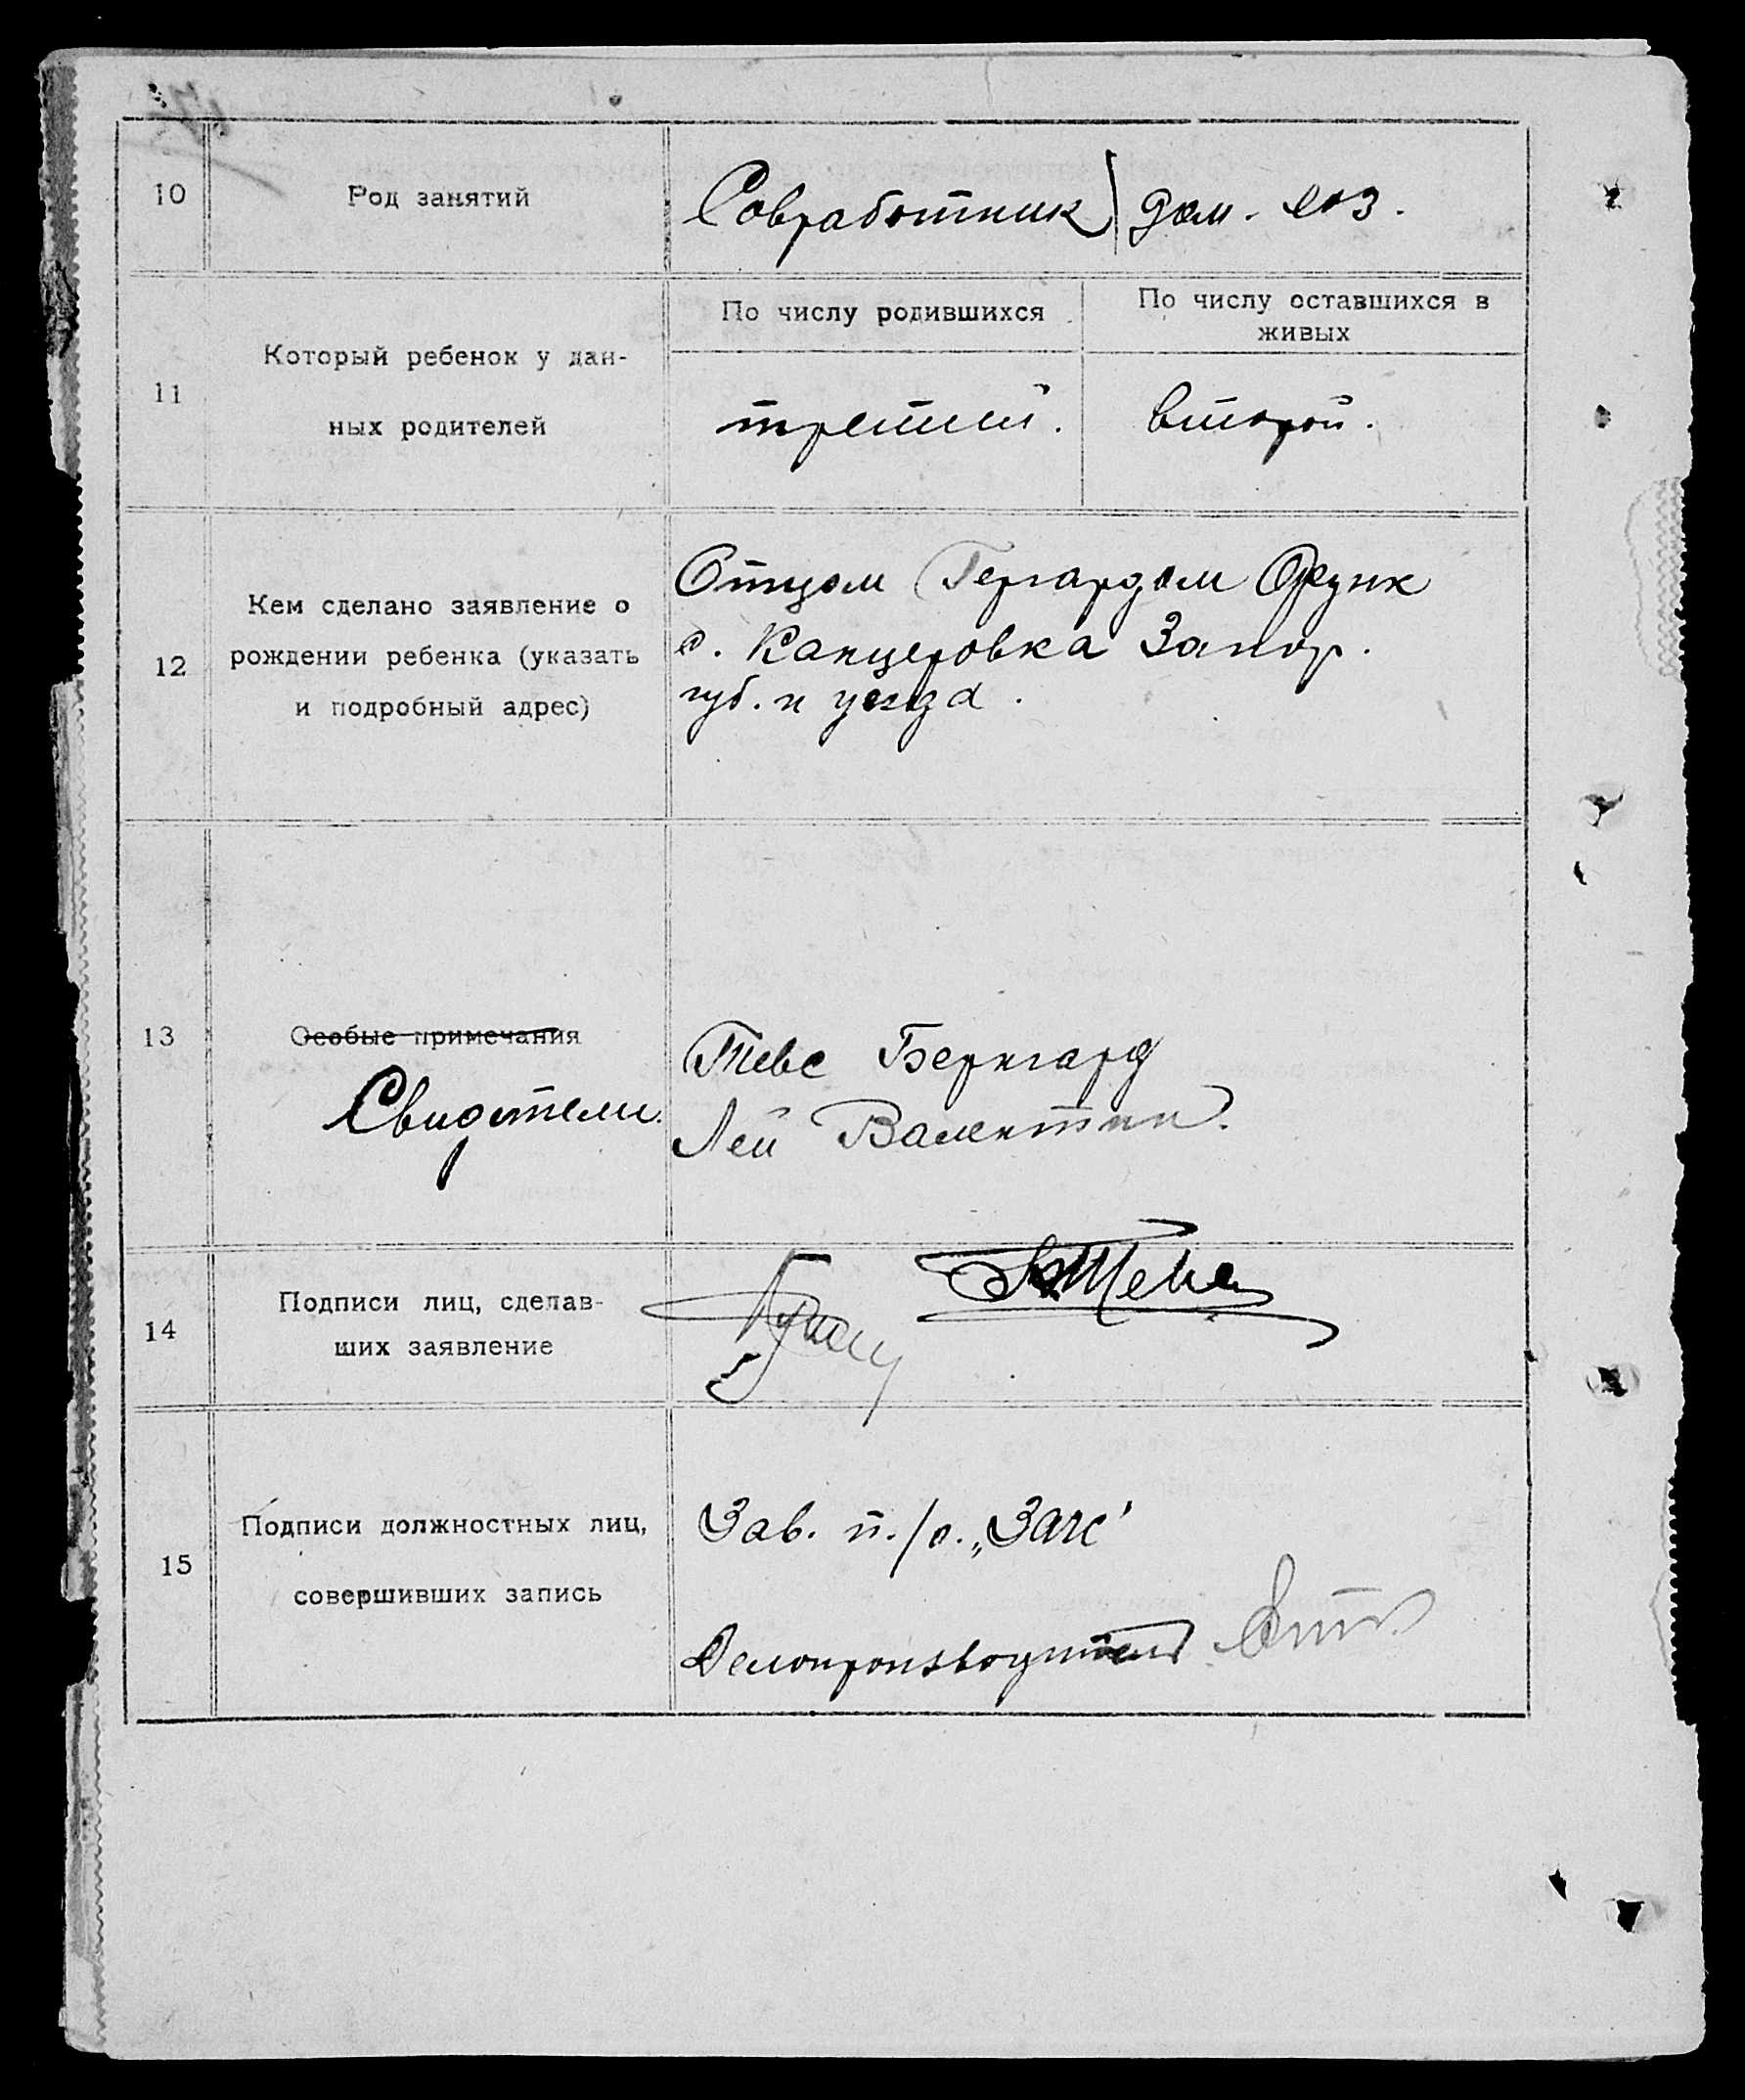 10
Род занятий
Совработник | дом. хоз.
11
Который ребенок у дан-
ных родителей
По числу родившихся
По числу оставшихся в
живых
третий.
второй.
12
Кем сделано заявление о
рождении ребенка (указать
и подробный адрес)
Отцом Гергардом Функ
с. Канцеровка Запор.
губ. и уезда.
13
Особые примечания
Свидетели.
Тевс Бернгард
Лей Валентин.
14
Подписи лиц, сделав-
ших заявление
15
Подписи должностных лиц,
совершивших запись
Зав. п./о. „Загс"
Делопроизводитель